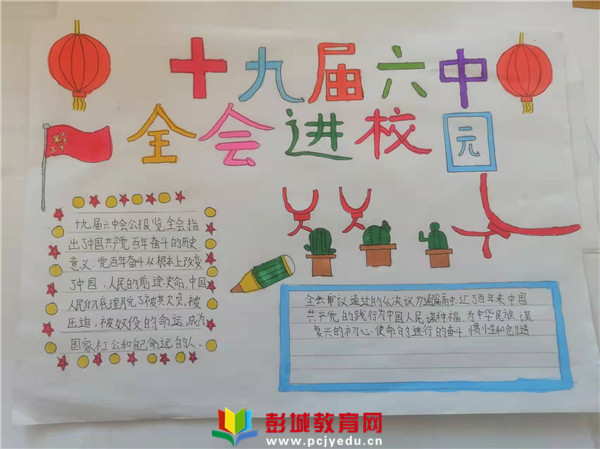 十九届六中
全会进校园
十九届六中会公报览全会指
出了中国共产党百年奋斗的历史
意义.党百年奋斗从根本上改变
了中国,人民的前途未命,中国
人民们我理用完了被其欠负,被
压迫,被奴役的命运,成为
国家杠公和自己命运的人、
全会审议通过的
百年来中国
共产党的践行为中国人民谋种福,为中华民族谋
复兴的初心、使命的进行的奋斗
彭城教育网
www.pcjyedu.cn